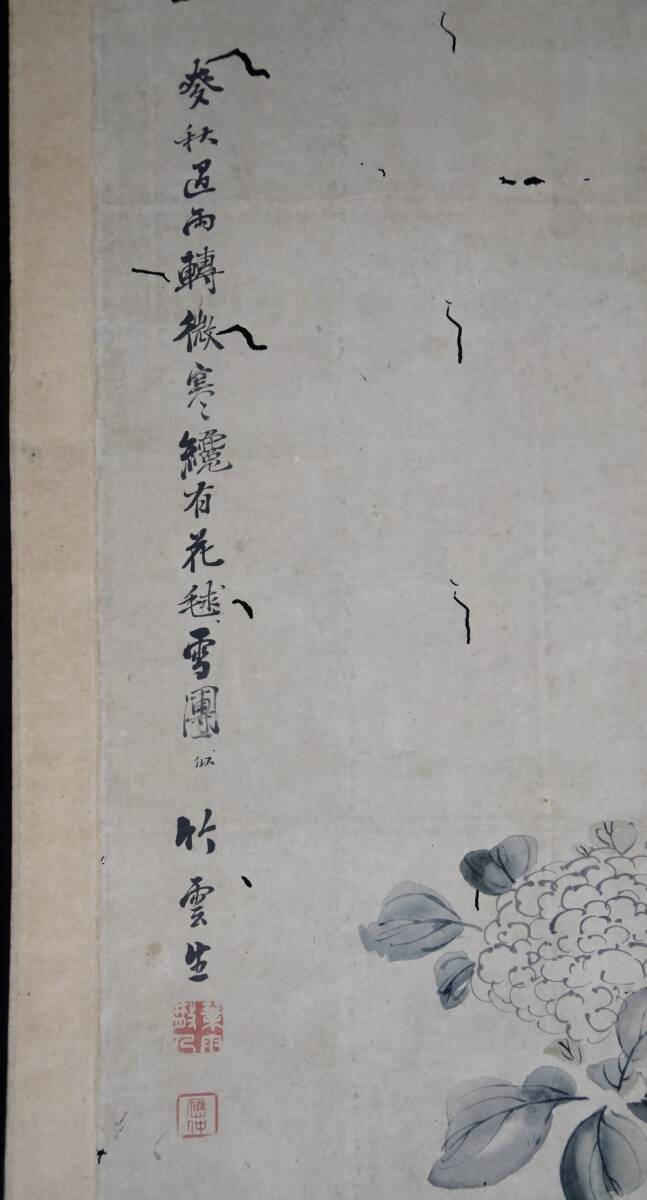 麥秋過雨轉微寒纔有花毬雪團似
竹雲生